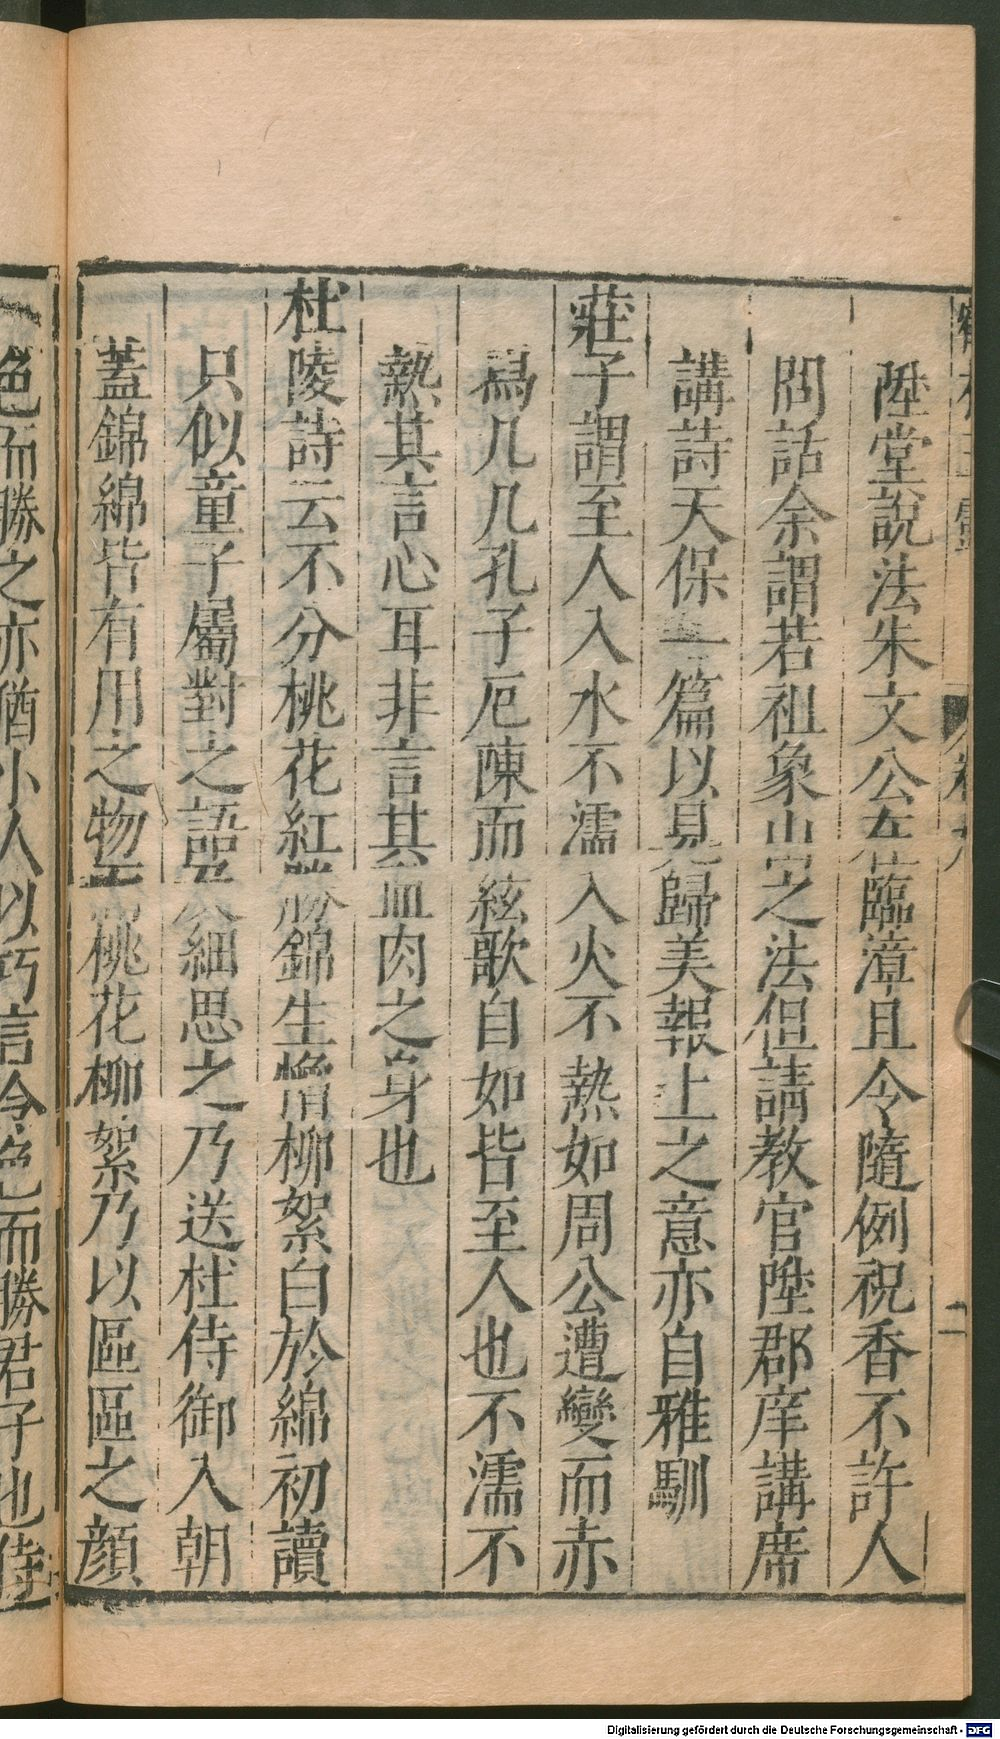 陞堂說法朱文公在臨漳且令隨例祝香不許人
問話余謂若祖象山之法但請教官陞郡庠講席
講詩天保一篇以見歸美報上之意亦自雅馴
莊子謂至人入水不濡入火不熱如周公遭變而赤
舄几几孔子厄陳而絃歌自如皆至人也不濡不
熱其言心耳非言其血肉之身也
杜陵詩云不分桃花紅勝錦生憎柳絮白於綿初讀
只似童子屬對之語及細思之乃送杜侍御入朝
蓋錦綿皆有用之物而桃花柳絮乃以區區之顔
色而勝之亦猶小人以巧言令色而勝君子也侍
二
Digitalisierung gefördert durch die Deutsche Forschungsgemeinschaft - DFG